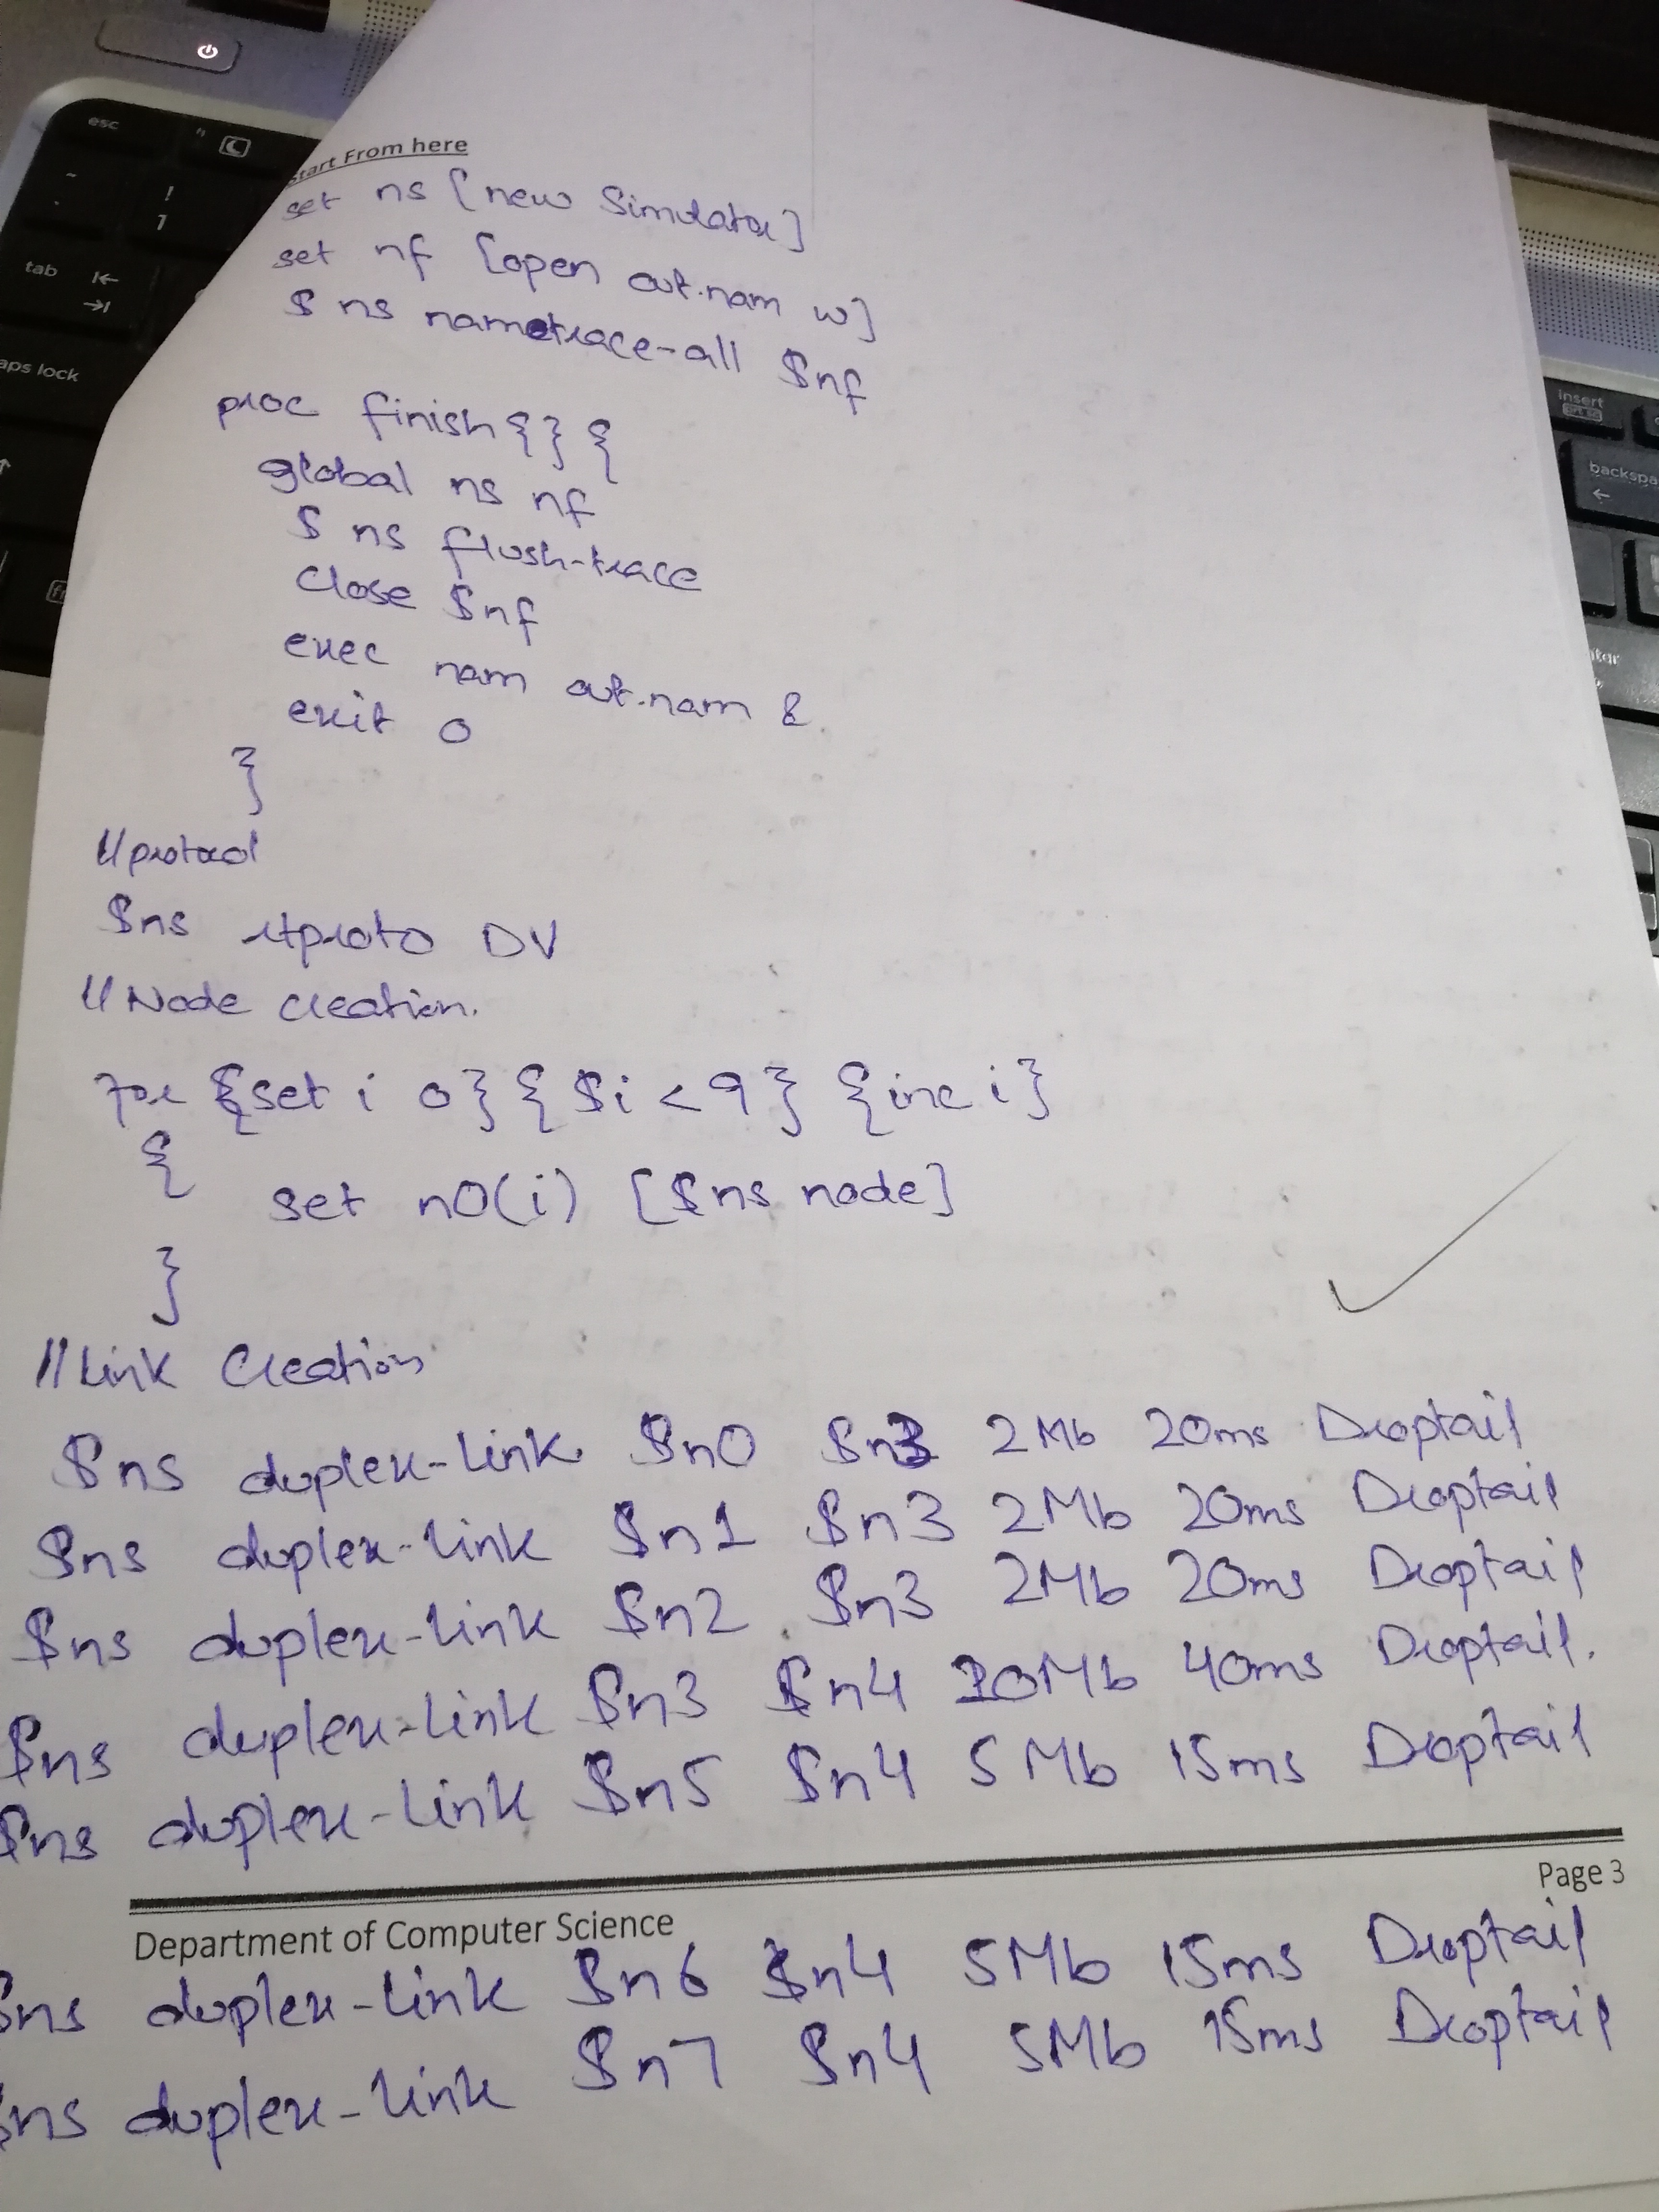 Start From here
set ns [new Simulator]
set nf [open out.nam w]
$ ns namtrace-all $nf
proc finish {} {
global ns nf
$ ns flush-trace
close $nf
exec nam out.nam &
exit 0
}
//protocol
$ns rtproto DV
//Node creation.
for {set i 0} {$i < 9} {inc i}
{
set n0(i) [$ns node]
}
//Link Creation
$ns duplex-link $n0 $n3 2Mb 20ms Droptail
$ns duplex-link $n1 $n3 2Mb 20ms Droptail
$ns duplex-link $n2 $n3 2Mb 20ms Droptail
$ns duplex-link $n3 $n4 10Mb 40ms Droptail.
$ns duplex-link $n5 $n4 5Mb 15ms Droptail
Page 3
Department of Computer Science
$ns duplex-link $n6 $n4 5Mb 15ms Droptail
$ns duplex-link $n7 $n4 5Mb 15ms Droptail
esc
!
1
tab
caps lock
fn
insert
prt sc
backspa